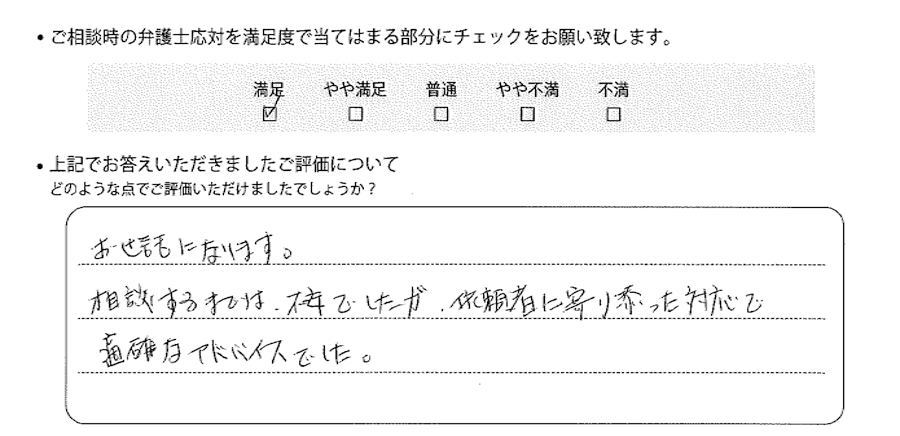 • ご相談時の弁護士応対を満足度で当てはまる部分にチェックをお願い致します。
満足 やや満足 普通 やや不満 不満
☑ ☐ ☐ ☐ ☐
• 上記でお答えいただきましたご評価について
どのような点でご評価いただけましたでしょうか？
お世話になります。
相談するまでは、不安でしたが、依頼者に寄り添った対応で
適確なアドバイスでした。